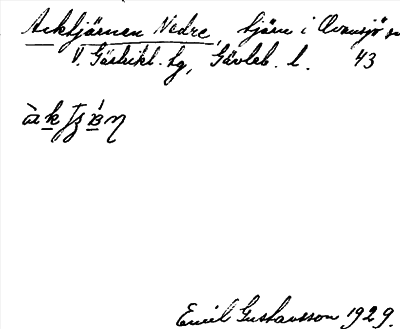 Acktjärnen Nedre, tjärn i Ovansjö sn
V. Gästrikl. tg, Gävleb. l. 43
Emil Gustavsson 1929.